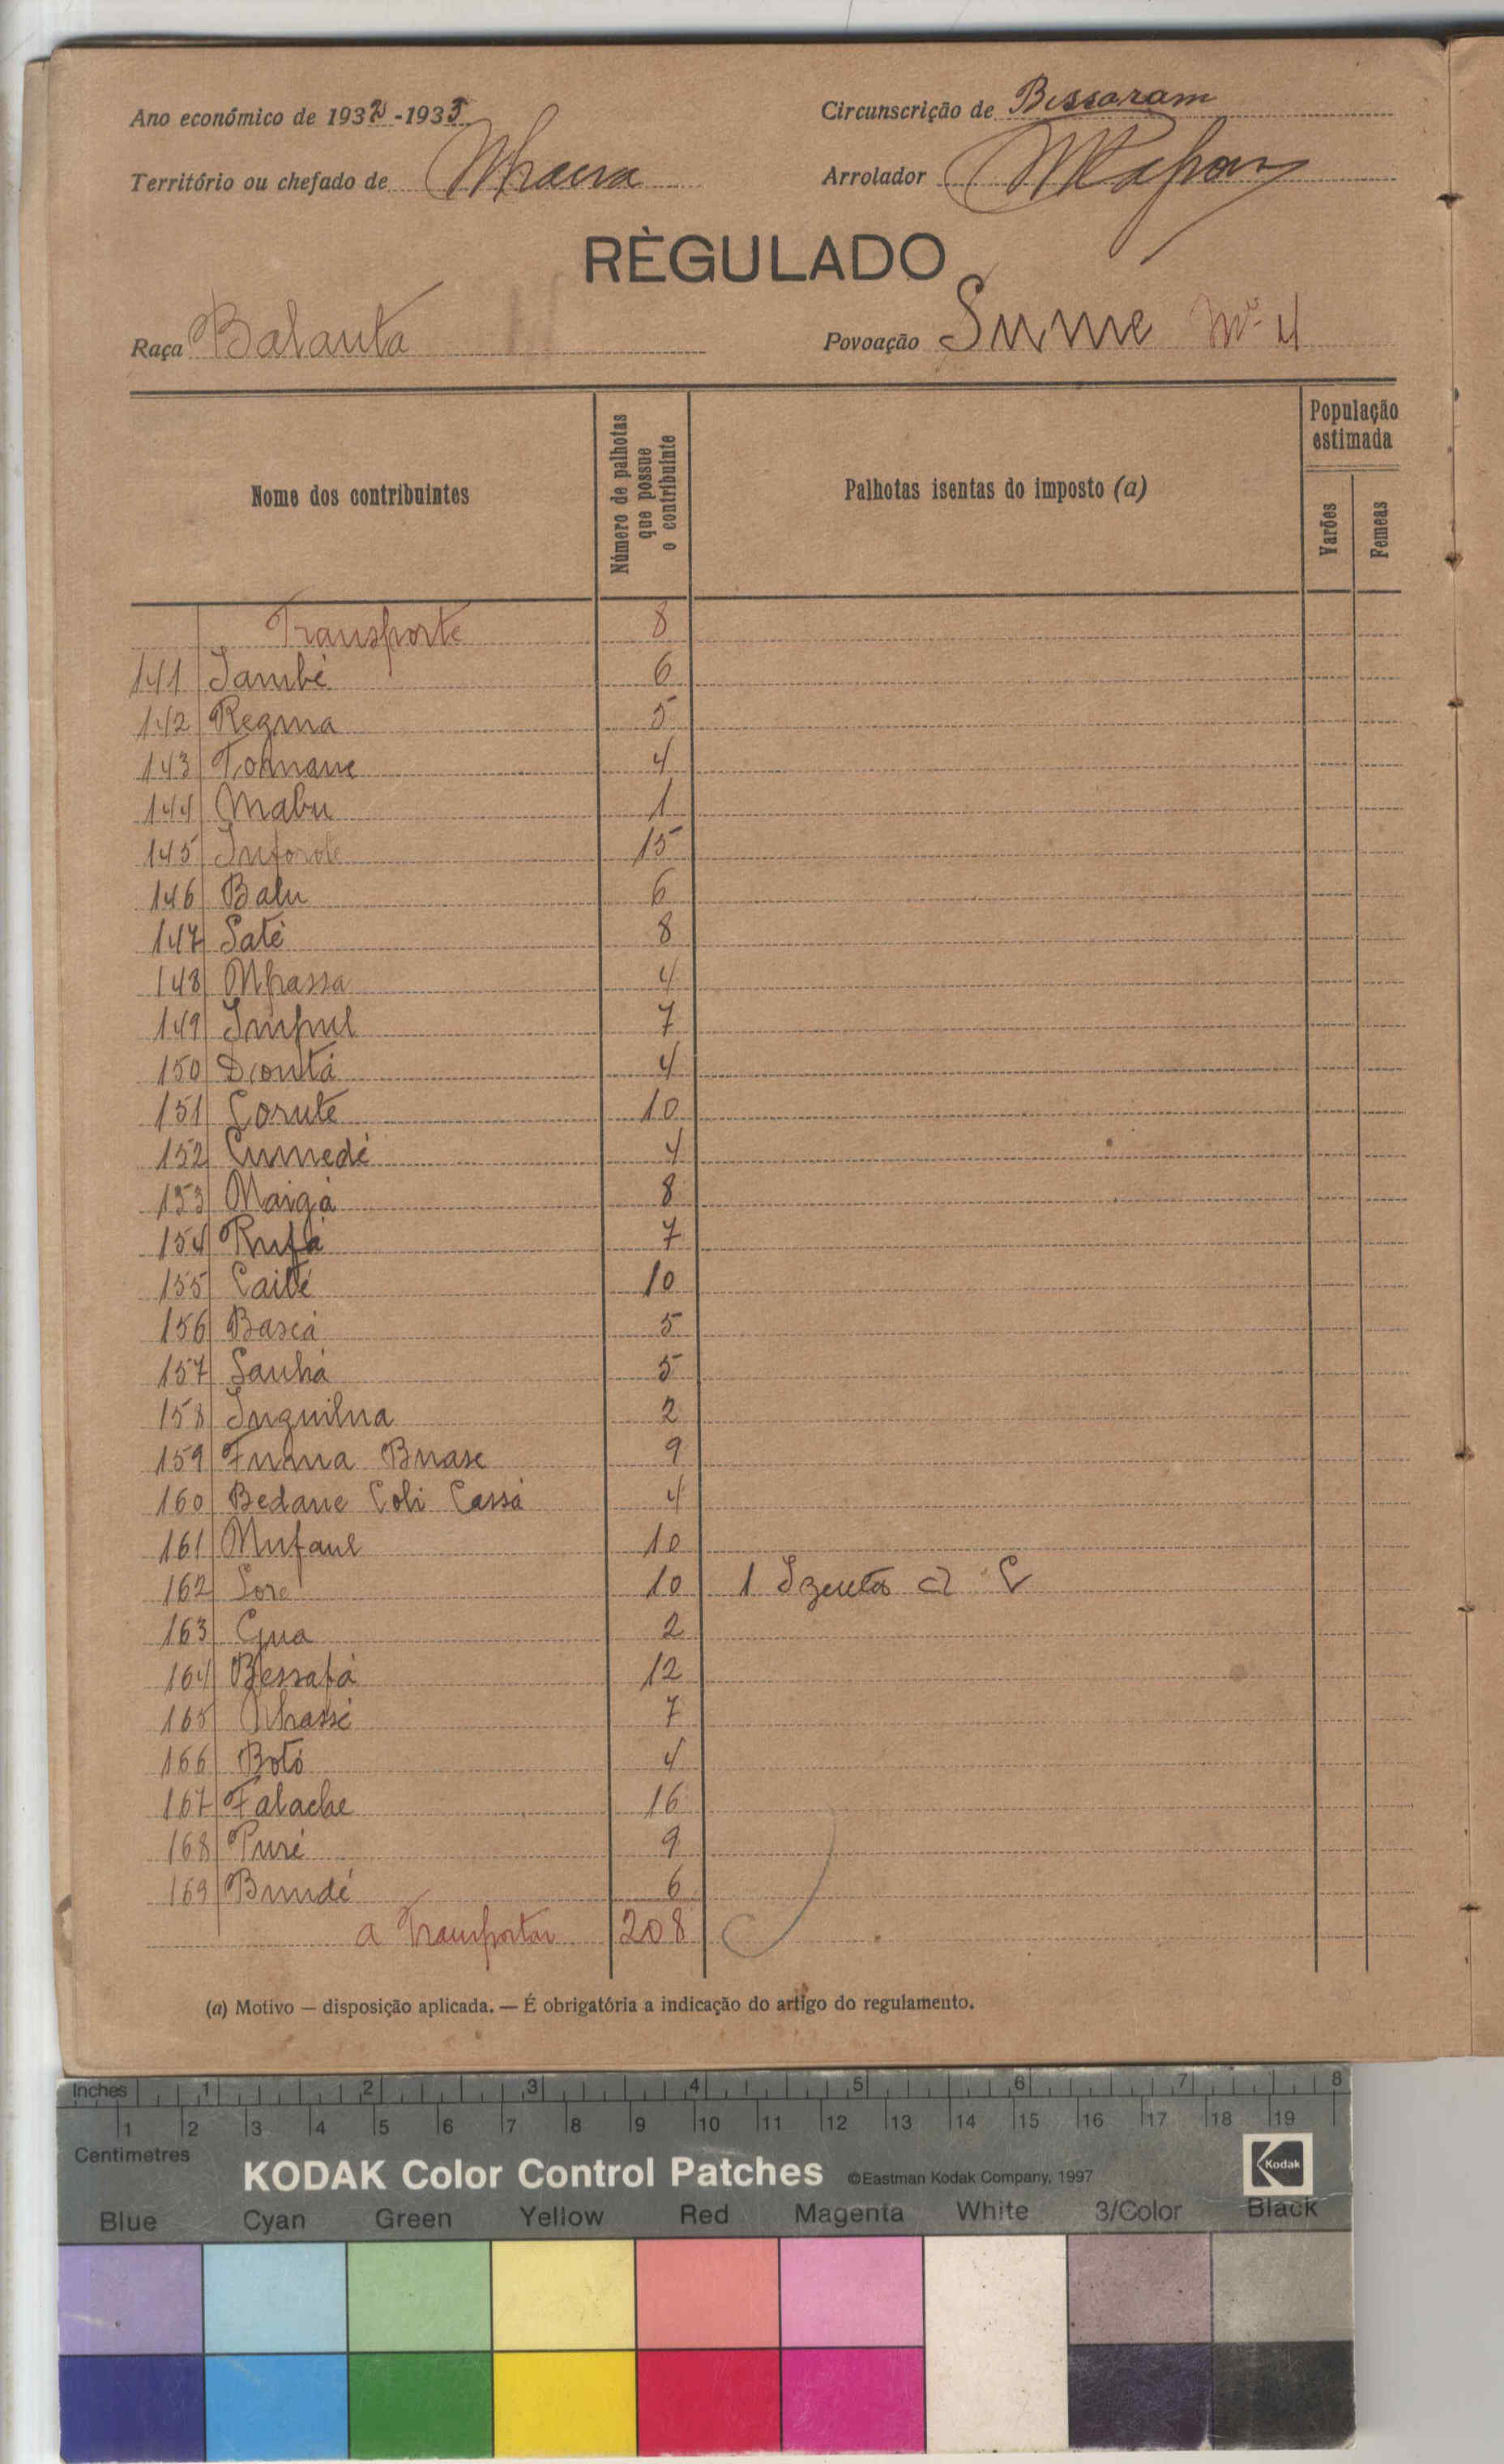 Ano económico de 1932-1933
Circunscrição de Bissoram
Território ou chefado de Nhaera
Arrolador
RÈGULADO
Raça Balanta
Povoação Sume Nº 4
Nome dos contribuintes
Número de palhotas que possue o contribuinte
Palhotas isentas do imposto (a)
População estimada
Varões
Femeas
Transporte 8
141 Jambé 6
142 Regma 5
143 Tomane 4
144 Mabu 1
145 15
146 Balu 6
147 Saté 8
148 Nhassa 4
149 Impul 7
150 Dontá 4
151 Corute 10
152 Cumedé 4
153 Naigá 8
154 Rufá 7
155 Caité 10
156 Bascá 5
157 Sanhá 5
158 Inquilna 2
159 Funna Buase 9
160 Bedane Coli Cassá 4
161 Mufane 10
162 Sore 10 1 Izenta a C
163 Cjua 2
164 Bessafá 12
165 Nhassé 7
166 Botó 4
167 Falache 16
168 Puré 9
169 Bundé 6
a Transportar 208
(a) Motivo — disposição aplicada. — É obrigatória a indicação do artigo do regulamento.
Inches 1 2 3 4 5 6 7 8
1 2 3 4 5 6 7 8 9 10 11 12 13 14 15 16 17 18 19
Centimetres
KODAK Color Control Patches ©Eastman Kodak Company, 1997 Kodak
Blue Cyan Green Yellow Red Magenta White 3/Color Black